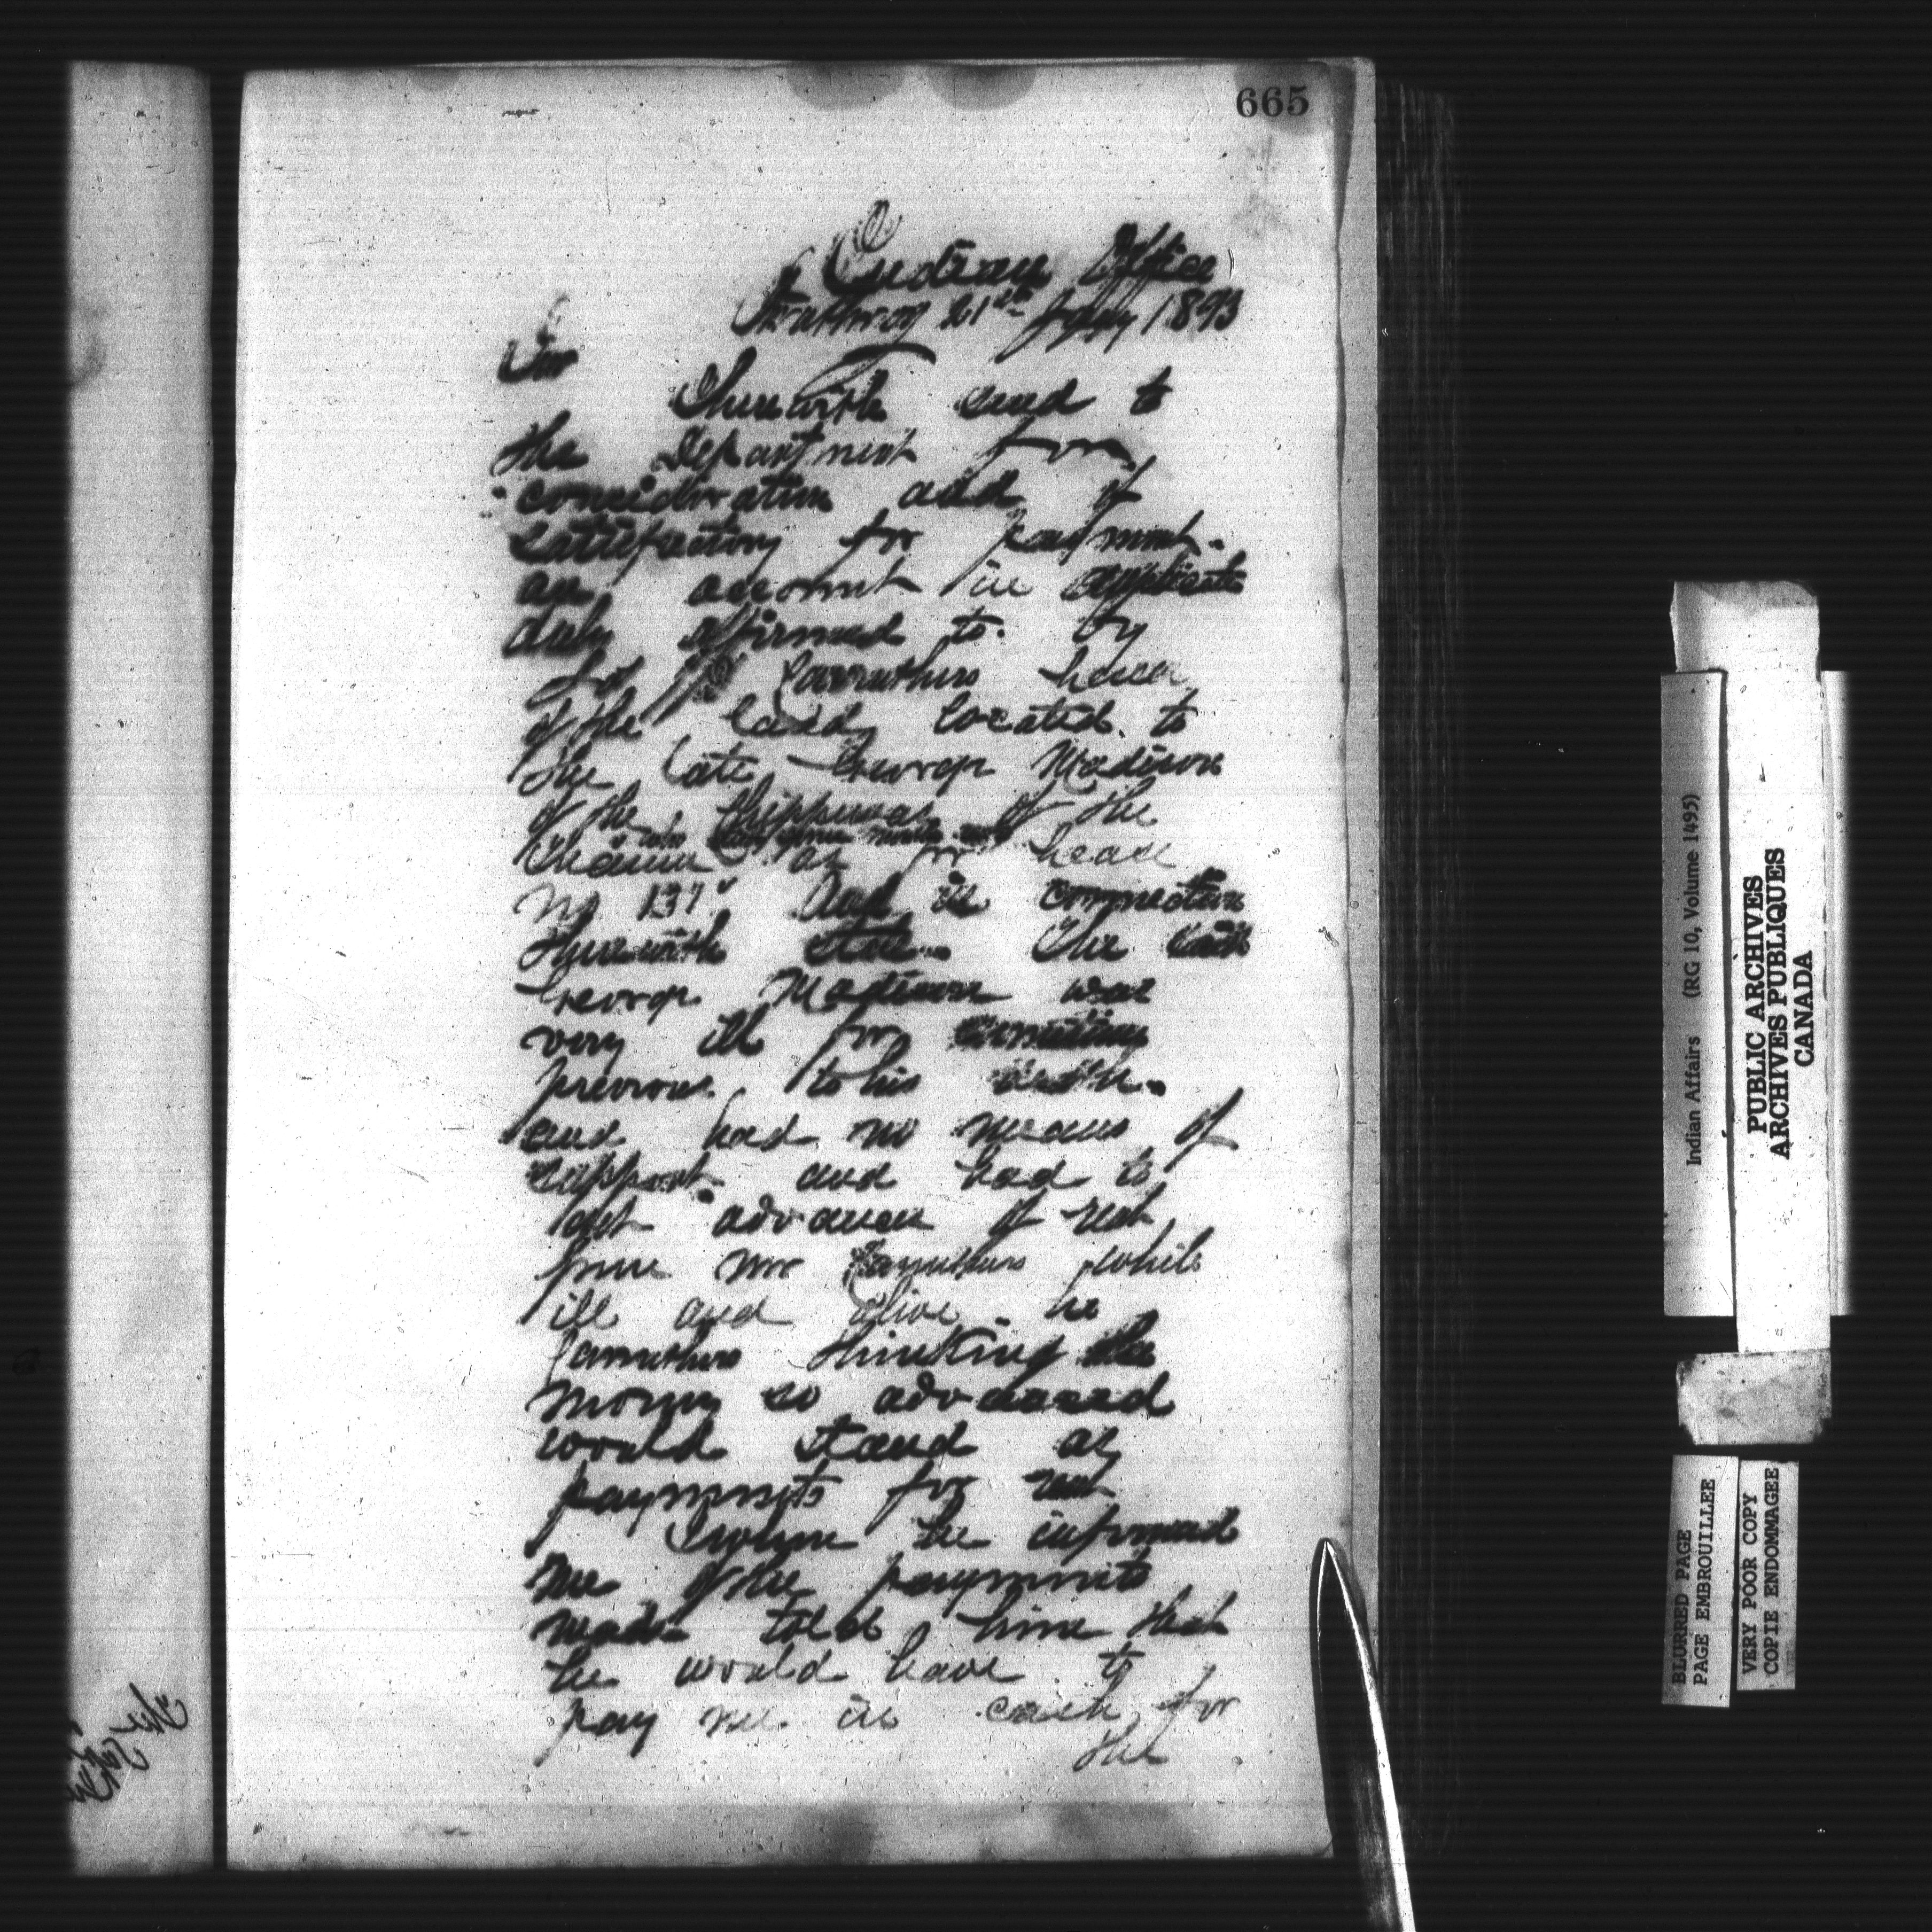 665
Indian Office
Strathroy 21st July 1893
Sir
I herewith send to
the Department for
consideration and if
satisfactory for payment
an account in duplicate
duly affirmed to by
Carruthers lessee
of the land located to
the late George Madison
of the Chippewas of the
Thames as per lease
No 137 And in connection
therewith state. The said
George Madison was
very ill for sometime
previous to his death.
and had no means of
support and had to
get advances of rent
from Mr Carruthers while
ill and alive he
Carruthers thinking the
money so advanced
would stand as
payments for rent
I when he informed
me of the payments
made told him that
he would have to
pay me in cash for
the
Indian Affairs (RG 10, Volume 1495)
PUBLIC ARCHIVES
ARCHIVES PUBLIQUES
CANADA
BLURRED PAGE
PAGE EMBROUILLEE
VERY POOR COPY
COPIE ENDOMMAGEE